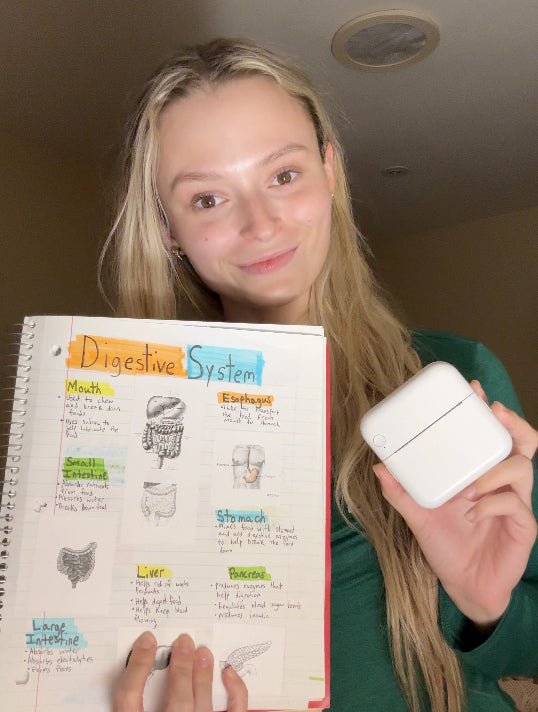 Digestive System
Mouth
• Used to chew
and break down
foods
• Uses saliva to
help lubricate the
food
Esophagus
• tube to transport
the food from
mouth to stomach
Small
Intestine
• Absorbs nutrients
from food
• Absorbs water
• Breaks down food
Stomach
• Mixes food with stomach
acid and digestive enzymes
to help break the food
down
Liver
• Helps rid of waste
products
• Helps digest food
• Helps keep blood
flowing
Pancreas
• produces enzymes that
help digestion
• Regulates blood sugar levels
• produces insulin
Large
Intestine
• Absorbs water
• Absorbs electrolytes
• Forms Feces